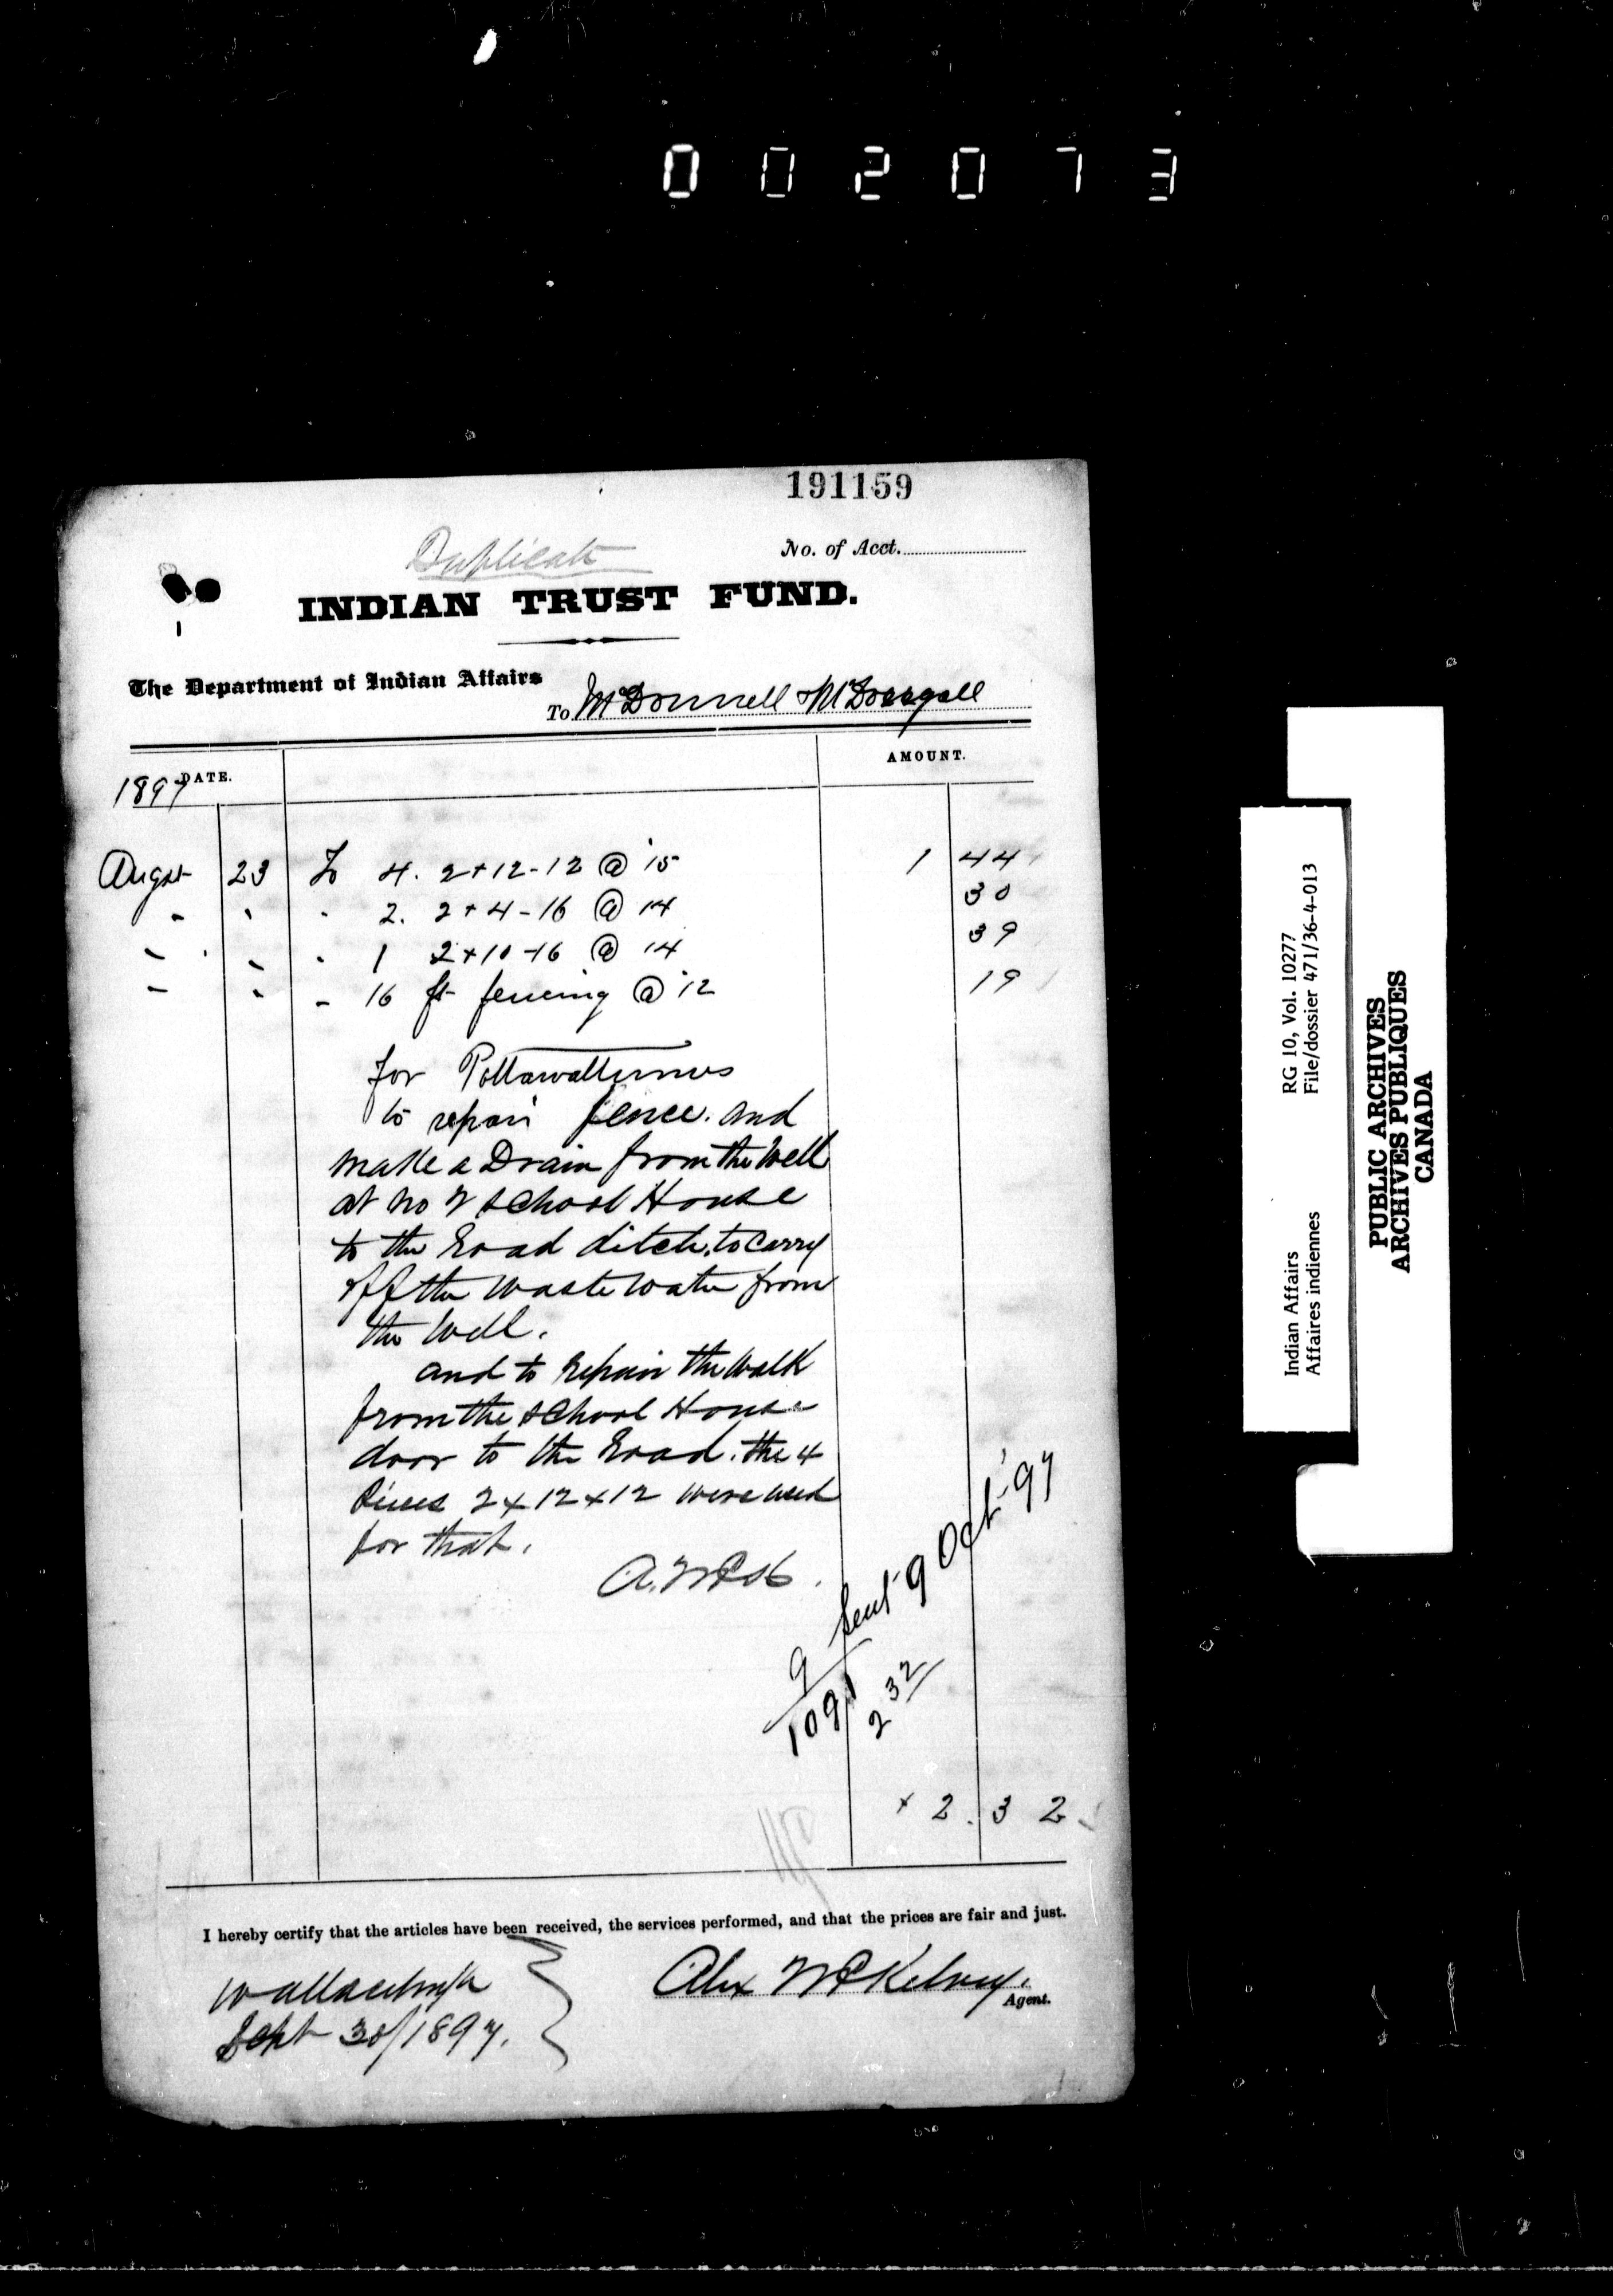 002073
191159
Duplicate
No. of Acct.
INDIAN TRUST FUND.
The Department of Indian Affairs
To McDonnell & McDougall
DATE.
AMOUNT.
1897
Augst 23 To 4. 2+12-12 @ 15 1 44
" " " 2. 2+4-16 @ 14 30
" " " 1 2+10-16 @ 14 39
" " " 16 ft fencing @ 12 19
for
to repair fence. and
make a Drain from the Well
at no 2 school House
to the Road ditch. to carry
off the waste water from
the Well.
and to repair the walk
from the school House
door to the Road. the 4
Pieces 2x12x12 were used
for that.
A. McK.
Sent 9 Oct '97
9
1091
2 32
2.32
I hereby certify that the articles have been received, the services performed, and that the prices are fair and just.
Wallaceburgh
Sept 30/1897.
Alex McKelvey.
Agent.
Indian Affairs RG 10, Vol. 10277
Affaires indiennes File/dossier 471/36-4-013
PUBLIC ARCHIVES
ARCHIVES PUBLIQUES
CANADA